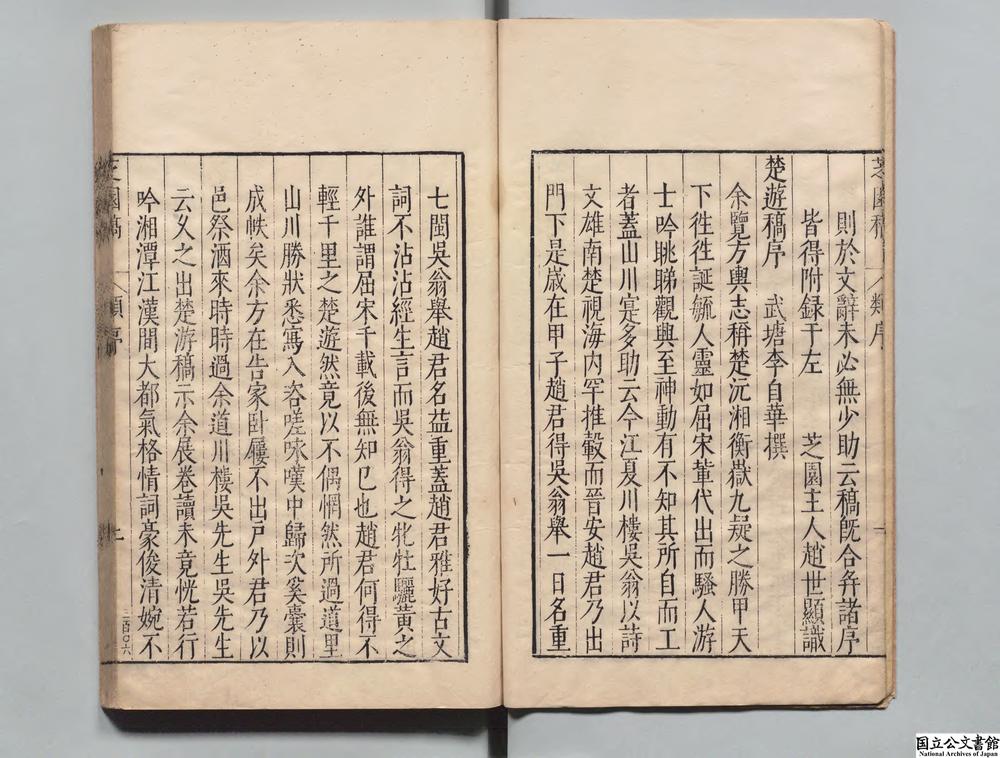 則於文辭未必無少助云稿旣合弁諸序
皆得附録于左　芝園主人趙世顯識
楚遊稿序　武塘李自華撰
余覽方輿志稱楚沅湘衡嶽九疑之勝甲天
下徃徃誕毓人靈如屈宋軰代出而騷人游
士吟眺睇觀興至神動有不知其所自而工
者蓋山川寔多助云今江夏川樓吳翁以詩
文雄南楚視海内罕推轂而晉安趙君乃出
門下是歲在甲子趙君得吳翁舉一日名重
七閩吳翁舉趙君名益重蓋趙君雅好古文
詞不沾沾經生言而吳翁得之牝牡驪黃之
外誰謂屈宋千載後無知已也趙君何得不
輕千里之楚遊然竟以不偶惘然所過道里
山川勝狀悉寫入咨嗟咏嘆中歸次奚囊則
成帙矣余方在告家卧屨不出戸外君乃以
邑祭酒來時時過余道川樓吳先生吳先生
云久之出楚游稿示余展卷讀未竟恍若行
吟湘潭江漢間大都氣格情詞豪俊清婉不
芝園稿
類序
国立公文書館
National Archives of Japan